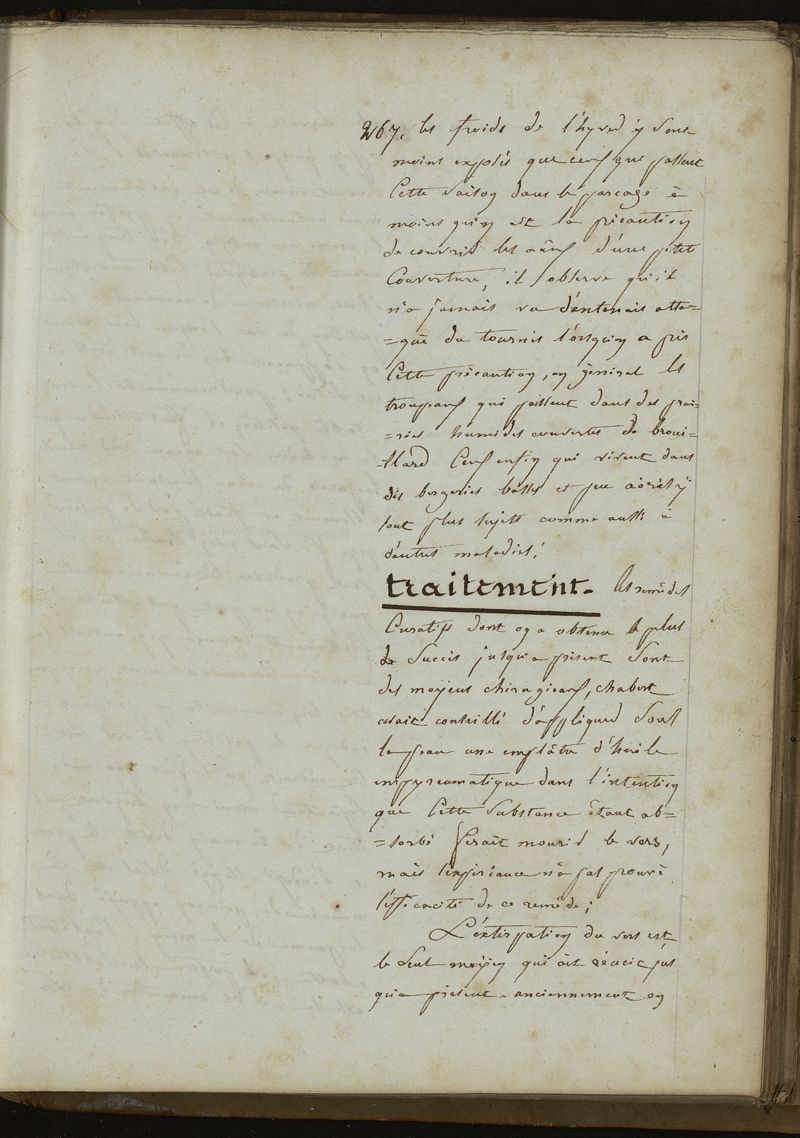 267. les froids de l'hyver y sont
moins exposés que ceux qui passent
Cette saison dans le parcage à
moins qu'on ait la précaution
de couvrir les reins d'une petite
Couverture, il observe qu'il
n'a jamais vu d'entenais atta=
=qué du tournis l'orsqu'on a pris
Cette précaution, en général les
troupeaux qui paissent dans des prai=
=ries humides couvertes de broui=
=llard Ceux enfin qui vivent dans
des bergeries basses et peu aéréés y
sont plus sujets comme aussi à
d'autres maladies;
traitement. les remêdes
Curatifs dont on a obtenu le plus
de Succès jusqu'a présent Sont
des moyens chirugicaux, chabert
avait conseillé d'appliquer Sous
la peau une emplâtre d'huile
empyreumatique dans l'intention
que Cette Substance étant ab=
=sorbé ferait mourir le vers,
mais l'expériance n'a pas prouvé
l'éfficacité de ce remêde;
L'extirpation du vers est
le Seul moyen qui ait réucie jus
qu'a présent. anciennement on